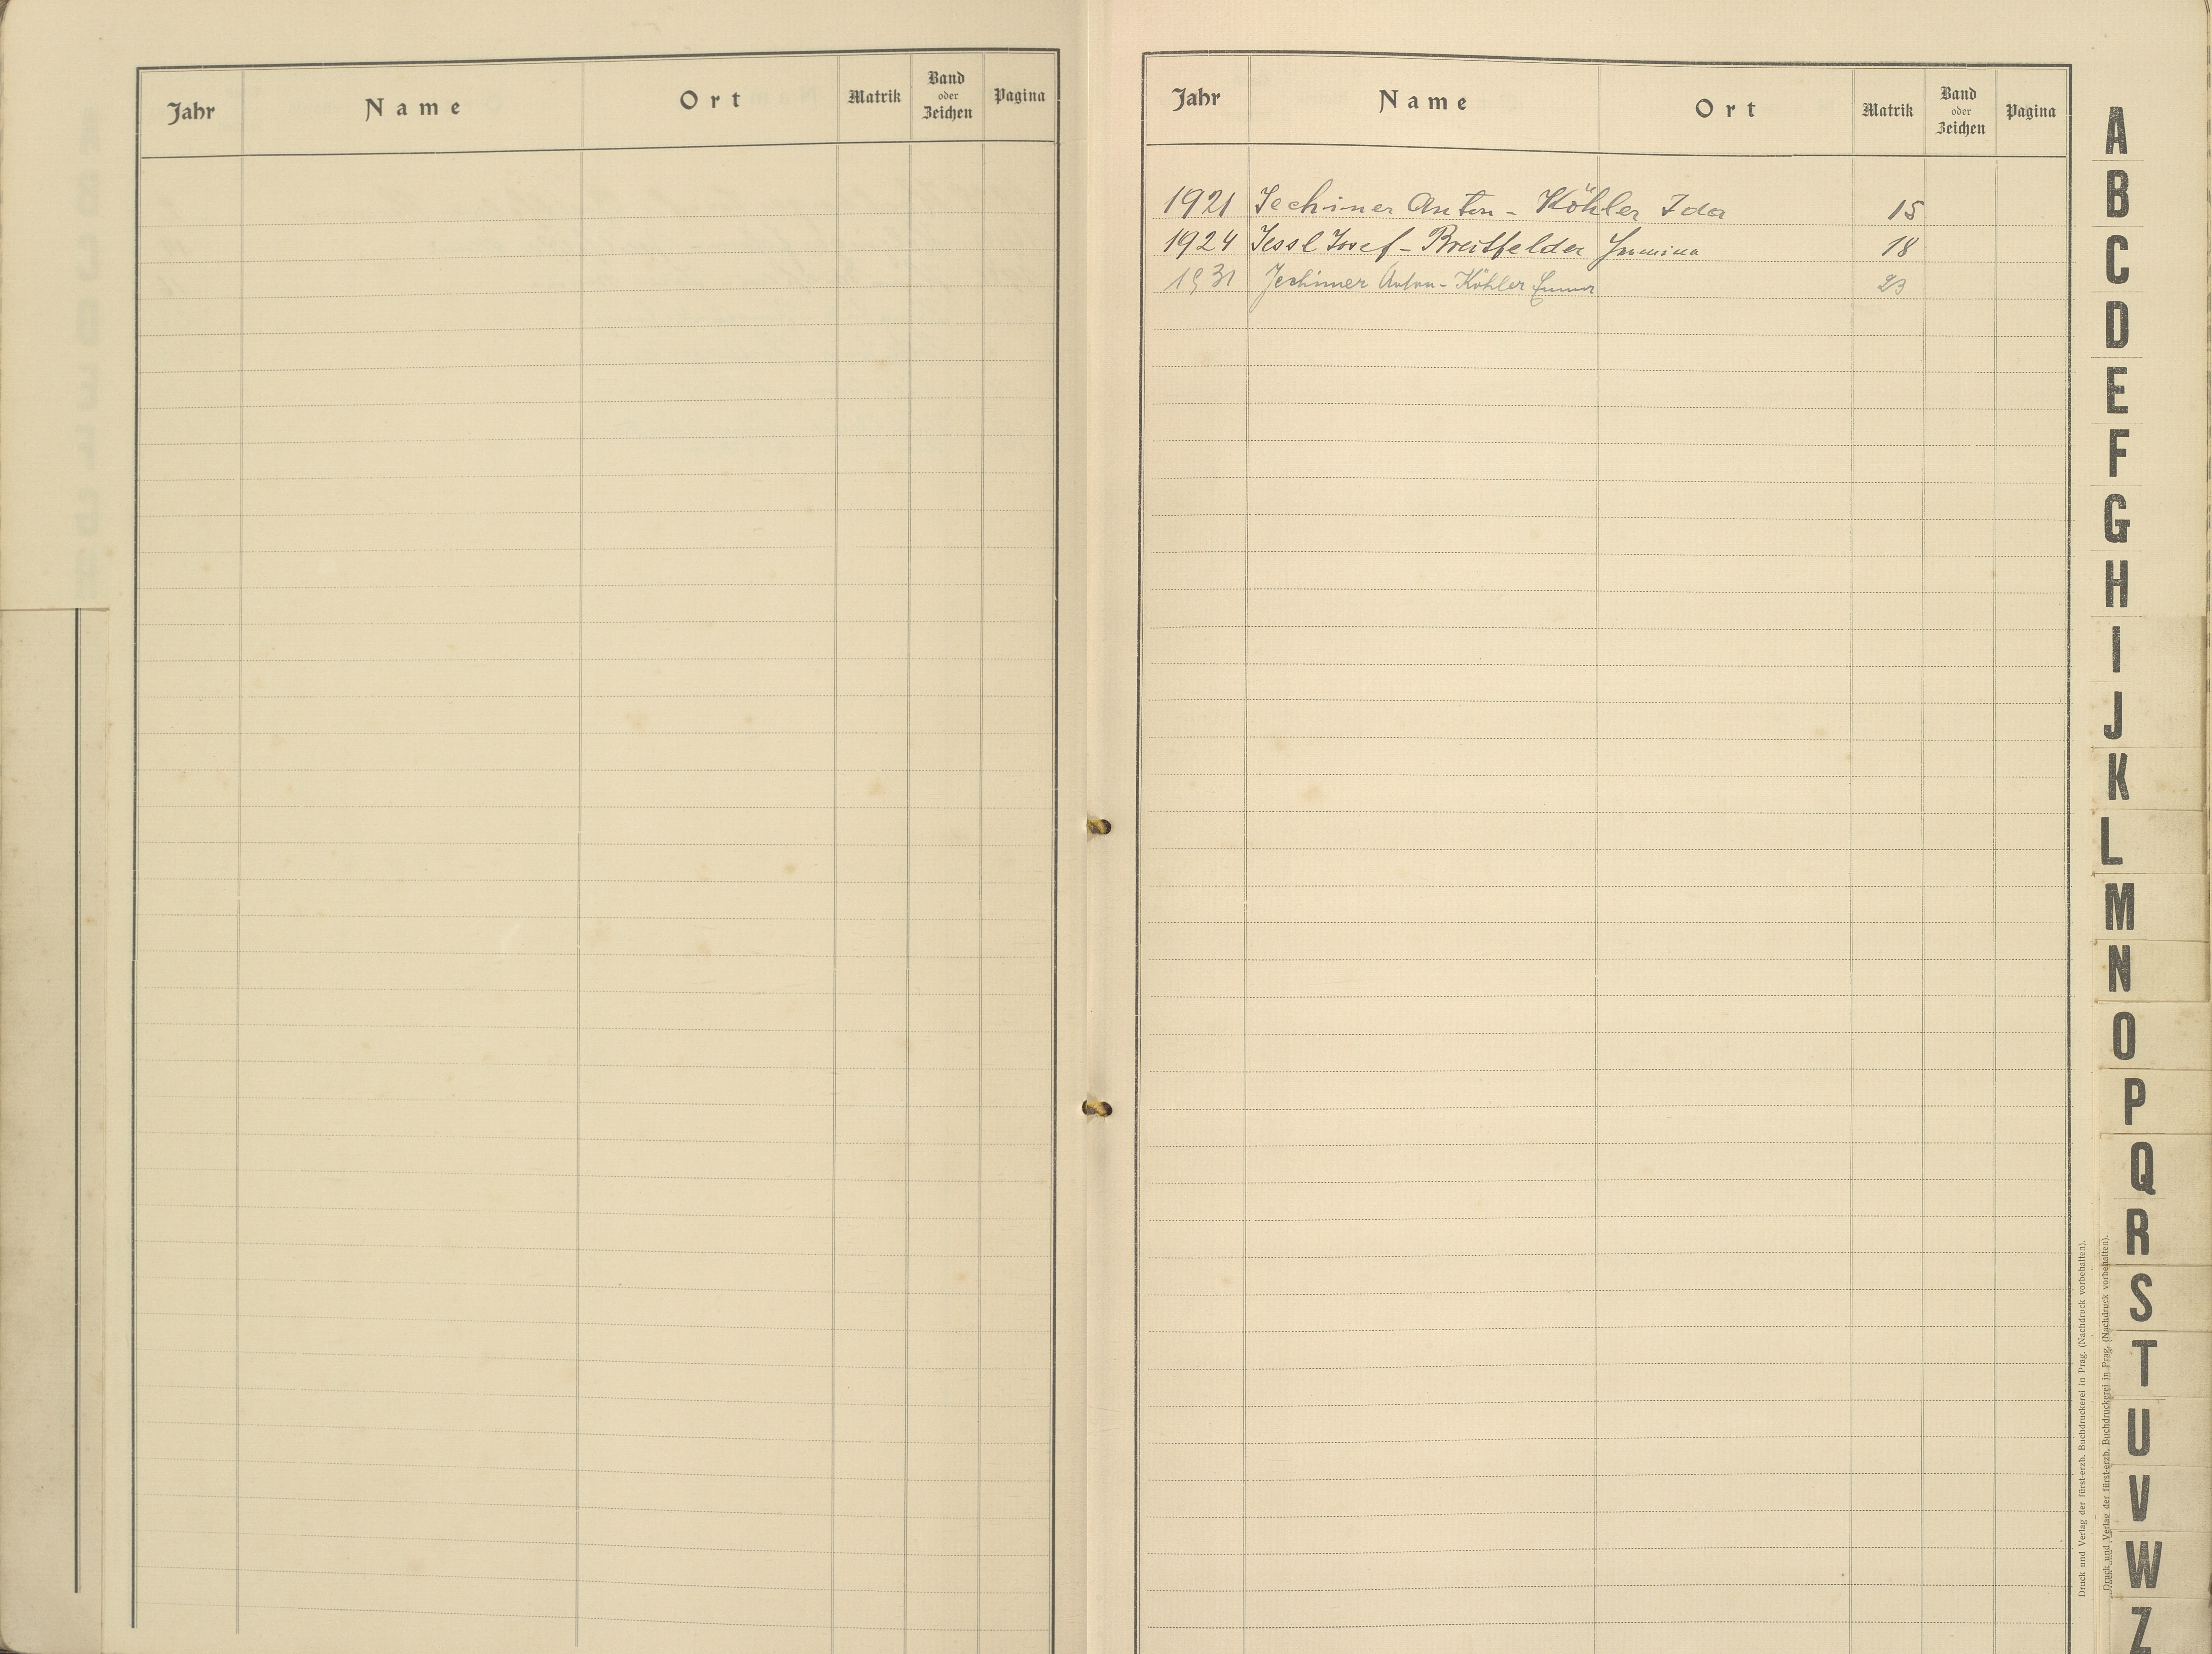 Jahr Name Ort Matrik Band oder Zeichen Pagina
Jahr Name Ort Matrik Band oder Zeichen Pagina
1921 Jechimer Anton - Köhler Ida 15
1924 Jessl Josef - Breitfelder 18
1931 Jechimer Anton - Köhler Emma 23
A
B
C
D
E
F
G
H
I
J
K
L
M
N
O
P
Q
R
S
T
U
V
W
Z
Druck und Verlag der fürst-erzb. Buchdruckerei in Prag. (Nachdruck vorbehalten).
Druck und Verlag der fürst-erzb. Buchdruckerei in Prag. (Nachdruck vorbehalten).